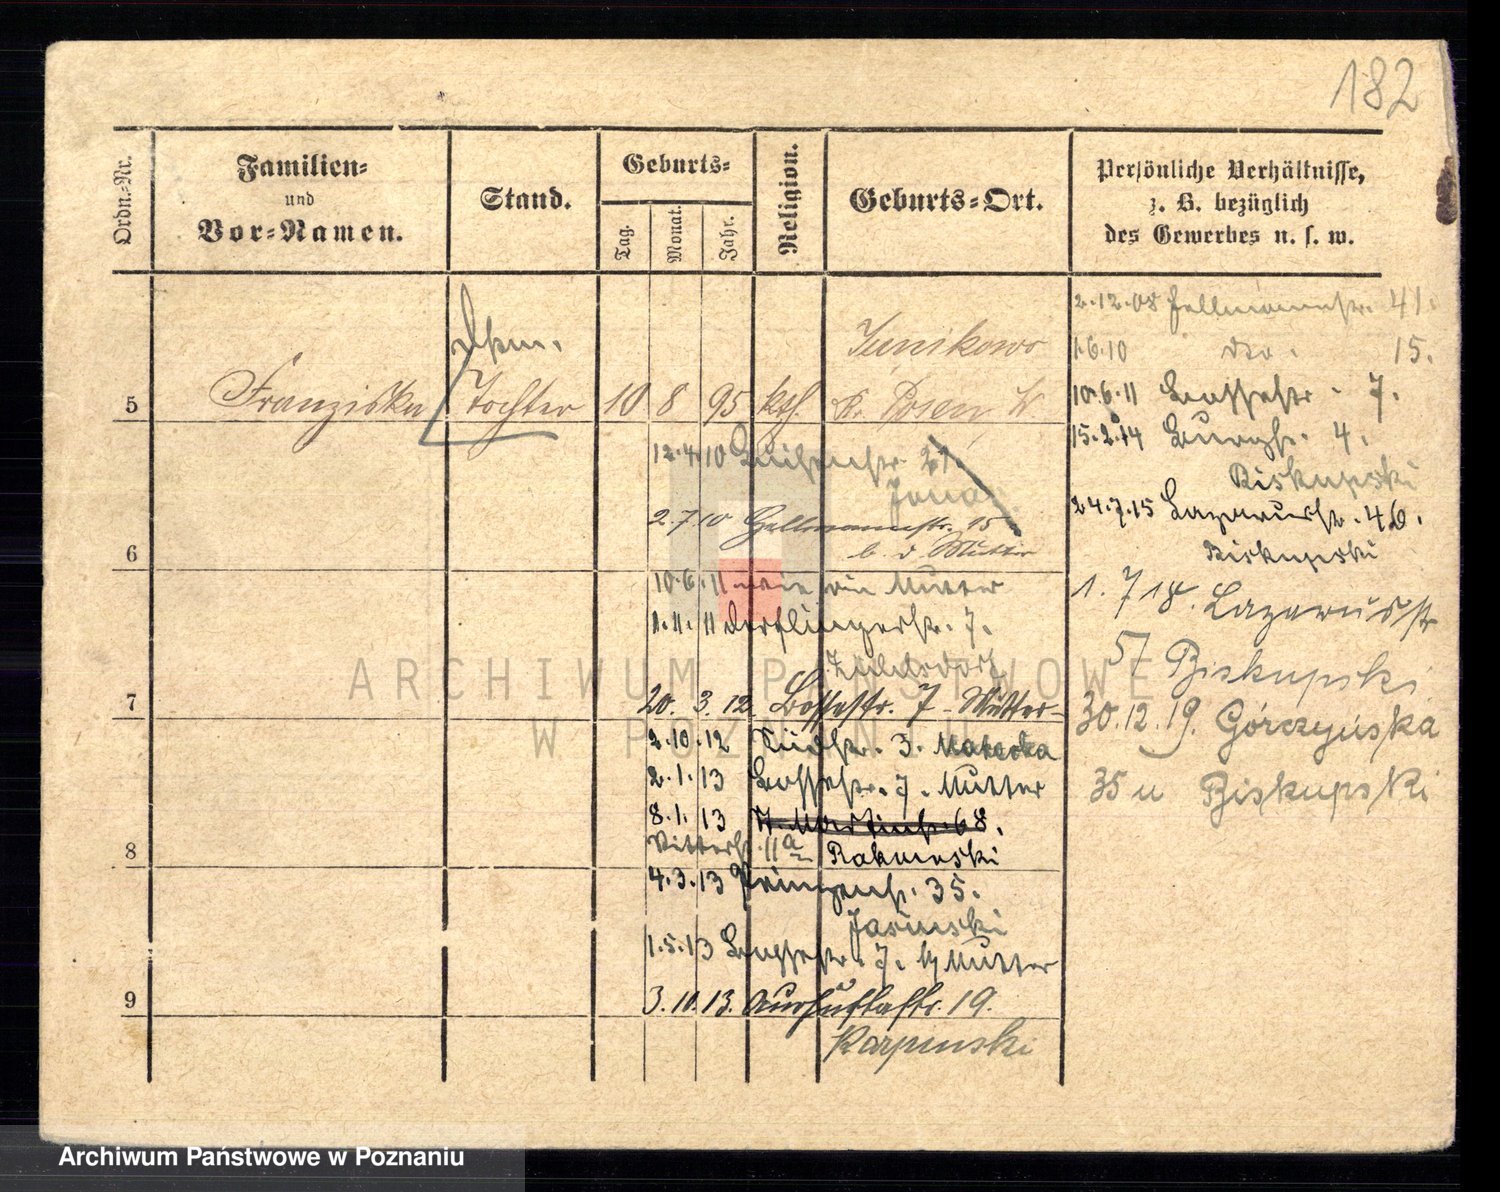 182
Ordn.-Nr.
Familien-
und
Vor-Namen.
Stand.
Geburts-
Tag.
Monat.
Jahr.
Religion.
Geburts-Ort.
Persönliche Verhältnisse,
z. B. bezüglich
des Gewerbes u. s. w.
5 Franziska Tochter 10 8 95 kth. Junikowo
Kr. Posen W
12.4.10 21.
2.7.10 Hellmannstr. 15
b. d. Mutter
6
10.6.11 wie die Mutter
1.11.11 Derflingerstr. 7.
7
20.3.12 Bossestr. 7 - Mutter -
2.10.12 3.
2.1.13 Bossestr. 7. Mutter
8.1.13 St. Martinstr. 68.
Ritterstr. 11a
8
4.3.13 Prinzenstr. 35.
Jasinski
1.5.13 Bossestr. 7. b/ Mutter
9
3.10.13. Augustastr. 19.
Karpinski
2.12.08 Hellmannstr. 41.
1.6.10 dto. 15.
10.6.11 Bossestr. 7.
15.2.14 Burgstr. 4.
Biskupski
24.7.15 Lazarusstr. 46.
Biskupski
1.7 18. Lazarusstr
57 Biskupski
30.12.19. Górczyńska
35 u Biskupski
ARCHIWUM PAŃSTWOWE
W POZNANIU
Archiwum Państwowe w Poznaniu